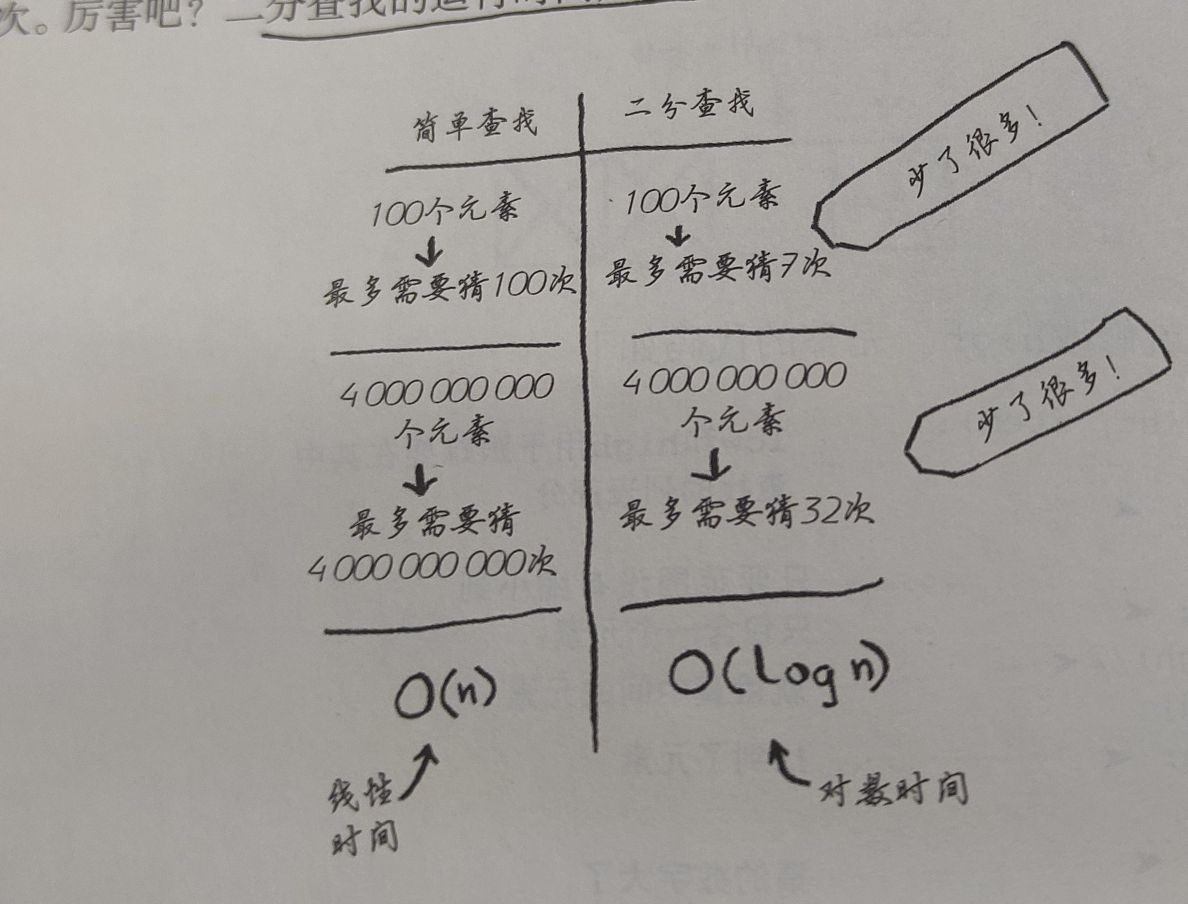 次。厉害吧？二分查找的运行时间
简单查找
二分查找
100个元素
最多需要猜100次
100个元素
最多需要猜7次
少了很多！
4 000 000 000
个元素
最多需要猜
4 000 000 000次
4 000 000 000
个元素
最多需要猜32次
少了很多！
O(n)
O(log n)
线性
时间
对数时间